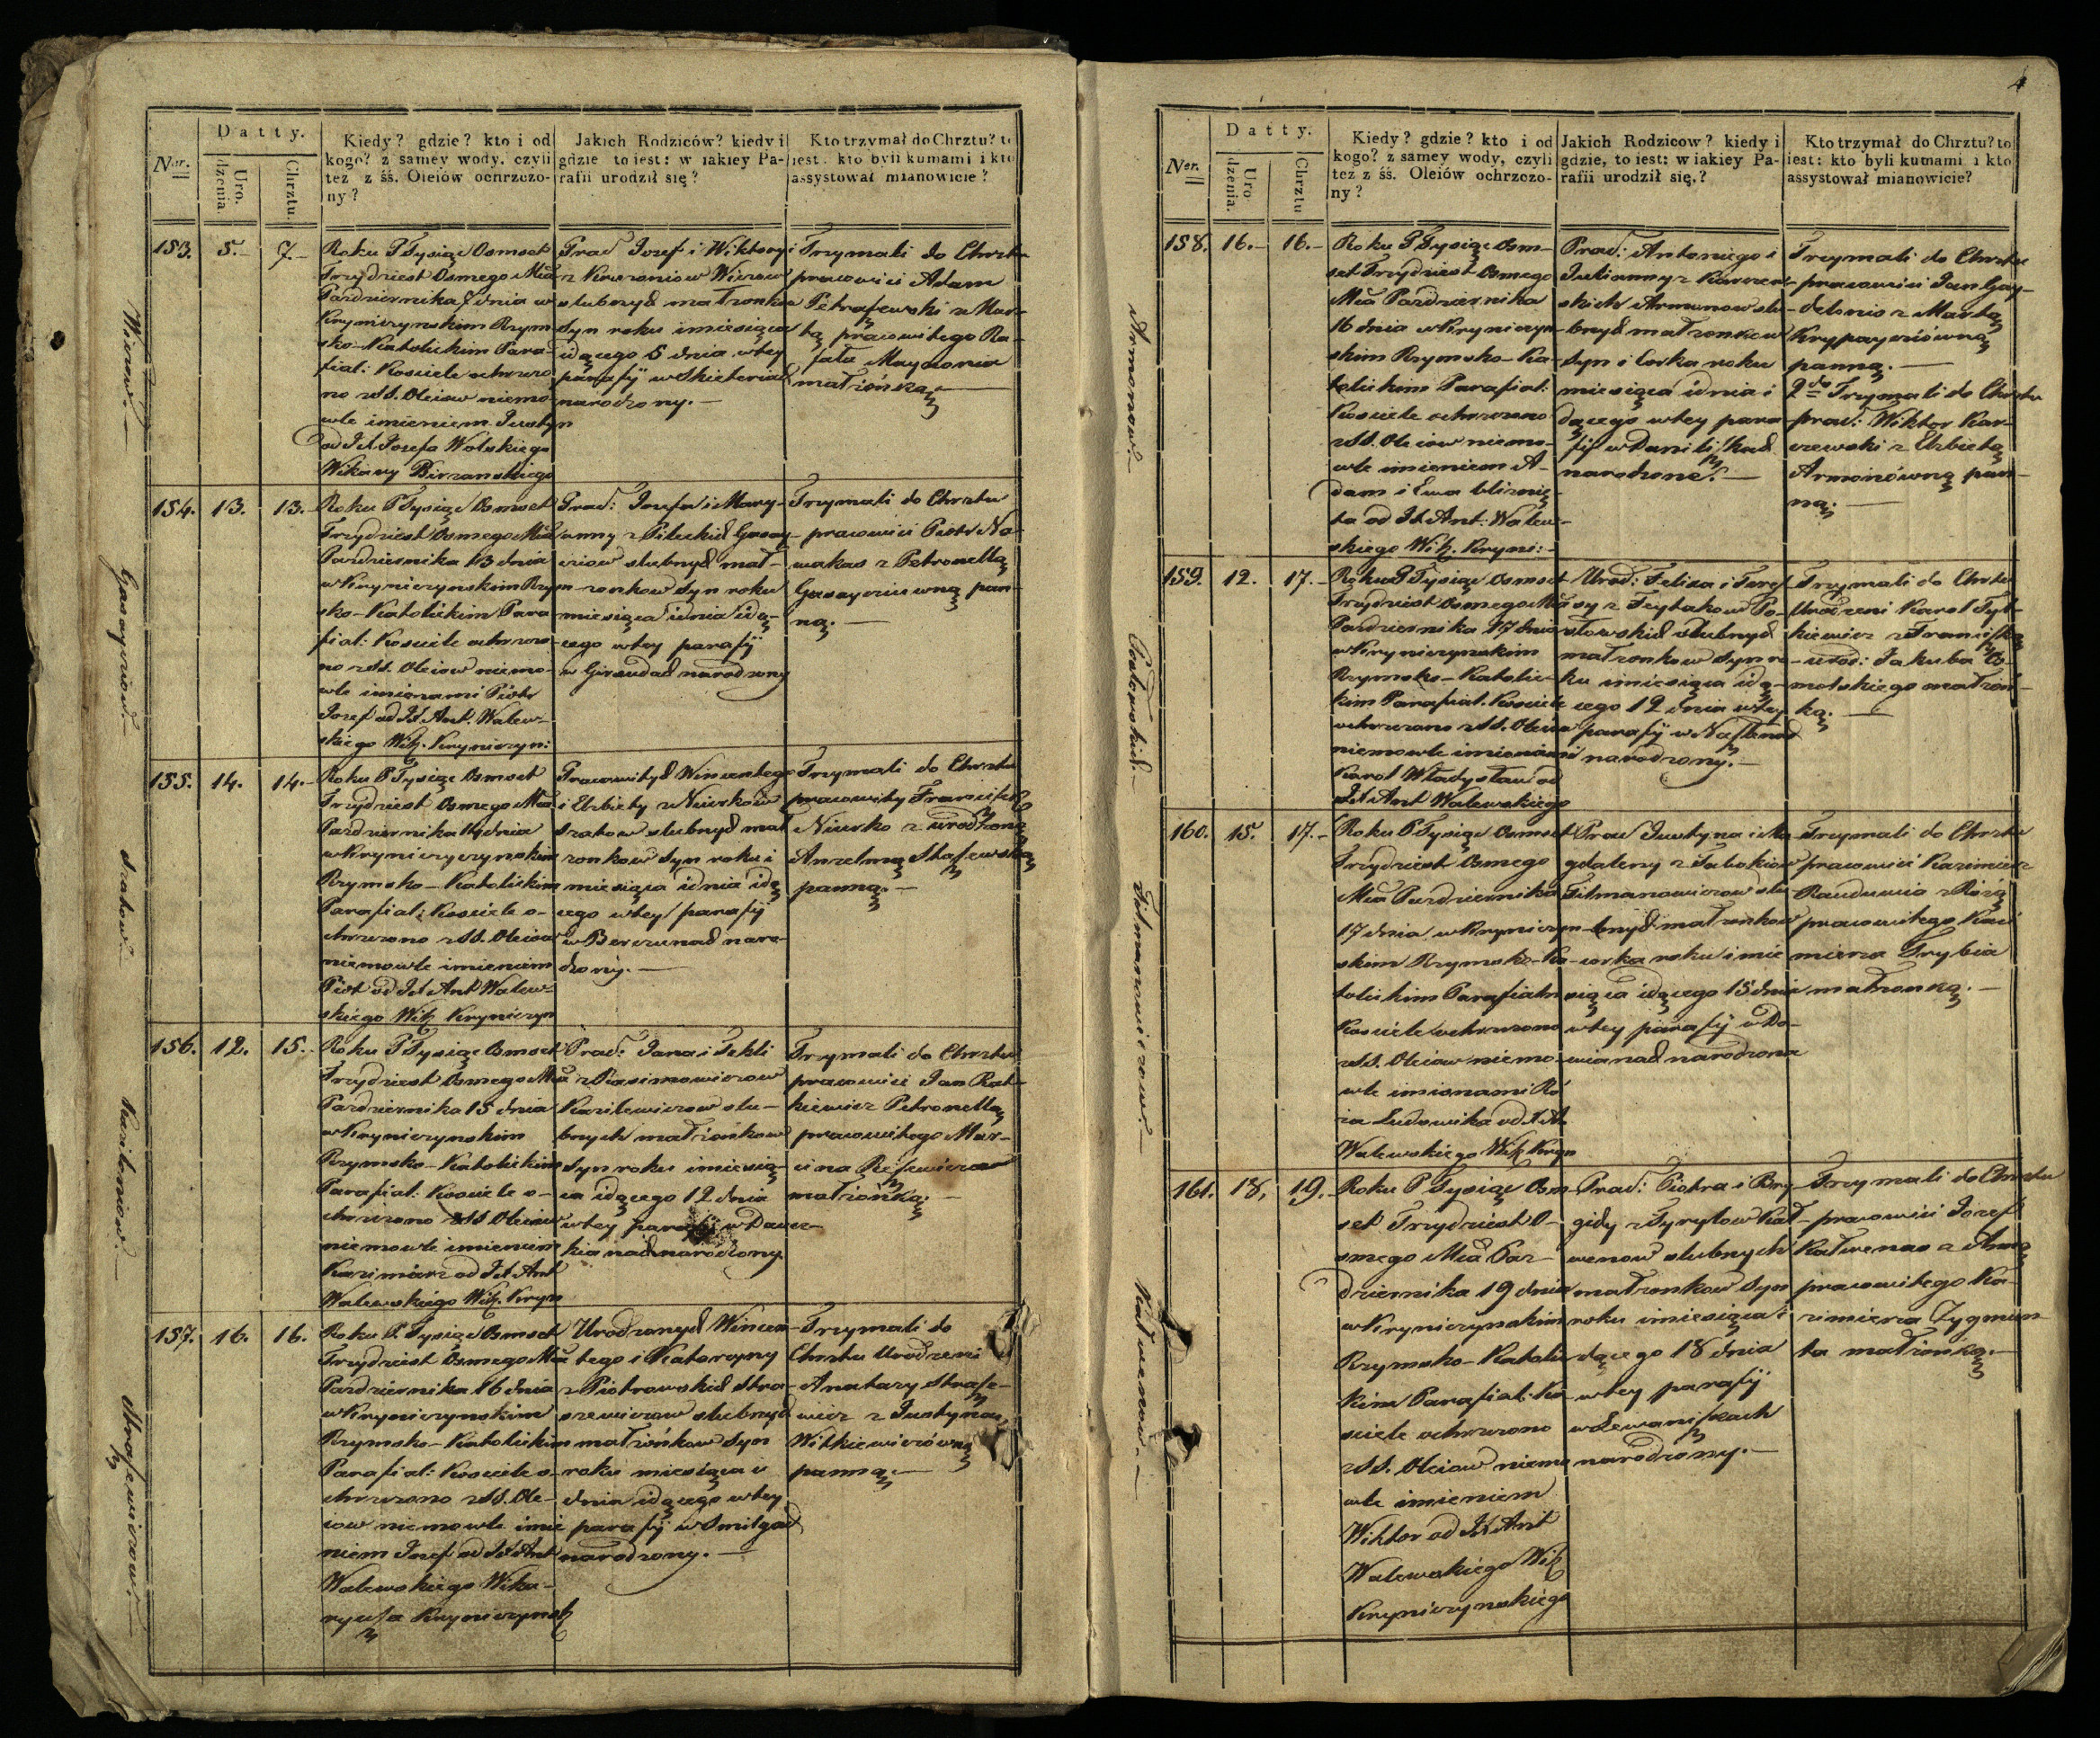 Datty.
Ner.
Uro.
dzenia.
Chrztu.
Kiedy? gdzie? kto i od
kogo? z samey wody, czyli
tez z śś. Oleiów ochrzczo-
ny?
Jakich Rodziców? kiedy i
gdzie to iest: w iakiey Pa-
rafii urodził się?
Kto trzymał do Chrztu? to
iest: kto byli kumami i kto
assystował mianowicie?
Wirow.
153. 5.- 7.-
Roku P. Tysiąc Osmset
Trzydziest Osmego Mca
Pazdziernika 7 dnia w
Kryniczynskim Rzym-
sko-Katolickim Para-
fial: Kosciele ochrzczo
no z SS. Oleiow niemo-
wle imieniem Justyn
od Józefa Wolskiego
Wikary Birzanskiego
Prac Jozef i Wiktoryi
z Wirow
slubnych małżonkow
Syn roku i miesiąca
idącego 5 dnia w tey
parafij w
narodzony.-
Trzymali do Chrztu
pracowici Adam
z Mar-
tą pracowitego Ra-
fała
małżonką.
Gasayciow.
154. 13. 13.-
Roku P Tysiąc Osmset
Trzydziest Osmego Mca
Pazdziernika 13 dnia
w Krynczynskim Rzym-
sko-Katolickim Para
fial: Kosciele ochrzczo
no z SS. Oleiow niemo-
wle imionami Piotr
Jozef od Ant. Walew-
skiego Wik. Krynczyn:
Prac: Jozefa i Mary-
anny z Gasay-
ciow slubnych mał-
zonkow Syn roku
miesiąca i dnia idą-
cego w tey parafij
w narodzony
Trzymali do Chrztu
pracowici Piotr No-
wakas z Petronellą
Gasayciuwną pan-
ną.-
Szatow
155. 14. 14.-
Roku P Tysiąc Osmset
Trzydziest Osmego Mca
Pazdziernika 14 dnia
w
Rzymsko-Katolickim
Parafial: Kosciele o-
chrzczono z SS. Oleiow
niemowle imieniem
Piotr od Ant Walew-
skiego Wik Krynczyn
Pracowitych Wincentego
i Elzbiety z Niurkow
Szatow slubnych mał
zonkow Syn roku i
miesiąca i dnia idą
cego w tey parafij
w naro-
dzony.-
Trzymali do Chrztu
pracowity Franciszek
Niurko z urodzoną
Anzelmą
panną.-
156. 12. 15.-
Roku P Tysiąc Osmset
Trzydziest Osmego Mca
Pazdziernika 15 dnia
w Krynczynskim
Rzymsko-Katolickim
Parafial: Kosciele o-
chrzczono z SS Oleiow
niemowle imieniem
Kazimierz od Ant
Walewskiego Wik. Kryn
Prac: Jana i Tekli
slu-
bnych małżonkow
Syn roku i miesią-
ca idącego 12 dnia
w tey parafij w
narodzony.
Trzymali do Chrztu
pracowici Jan
Petronellą
pracowitego Mar-
cina
małżonką.-
157. 16. 16.
Roku P. Tysiąc Osmset
Trzydziest Osmego Mca
Pazdziernika 16 dnia
w Krynczynskim
Rzymsko-Katolickim
Parafial: Kosciele o-
chrzczono z SS. Ole-
iow niemowle imie
niem Jozef od Ant
Walewskiego Wika-
ryusza
Urodzonych Wincen-
tego i Katarzyny
z Piotrowskich Stra-
szewiczow slubnych
małżonkow Syn
roku miesiąca i
dnia idącego w tey
parafij w Smilgach
narodzony.-
Trzymali do
Chrztu Urodzeni
Anatazy Strasze-
wicz z Justyną
Witkiewiczówną
panną.-
Straszewiczow.-
4
Datty.
Ner.
Uro
dzenia.
Chrztu
Kiedy? gdzie? kto i od
kogo? z samey wody, czyli
tez z śś. Oleiów ochrzczo-
ny?
Jakich Rodzicow? kiedy i
gdzie, to iest: w iakiey Pa-
rafii urodził się,?
Kto trzymał do Chrztu? to
iest: kto byli kumami i kto
assystował mianowicie?
158. 16.- 16.-
Roku P Tysiąc Osm-
set Trzydziest Osmego
Mca Pazdziernika
16 dnia w Krynczyn-
skim Rzymsko-Ka-
tolickim Parafial:
Kosciele ochrzczono
z SS. Oleiow niemo-
wle imieniem A-
dam i Ewa bliznię-
ta od Ant: Walew-
skiego Wik.
Prac: Antoniego i
Julianny z Karczew-
skich Armonow slu-
bnych małzonkow
Syn i Corka roku
miesiąca i dnia i
dącego w tey para
fij w
narodzone.-
Trzymali do Chrztu
pracowici Jan
z Martą
panną.-
2do Trzymali do Chrztu
prac: Wiktor Kar-
czewski z Elzbietą
Armonówną pan-
ną.-
159. 12. 17.-
Roku P Tysiąc Osmset
Trzydziest Osmego Mca
Pazdziernika 17 dnia
w Krynczynskim
Rzymsko-Katolic-
kim Parafial. Kosciele
ochrzczono z SS. Oleiow
niemowle imionami
Karol Władysław od
Ant Walewskiego
Urod: Felixa i Teref
Po-
słowskich slubnych
małzonkow Syn ro-
ku i miesiąca idą-
cego 12 dnia w tey
parafij w
narodzony.-
Trzymali do Chrztu
Urodzeni Karol
z Franciszką
urod: Jakuba
małżon-
ką.
160. 15. 17.-
Roku P Tysiąc Osmset
Trzydziest Osmego
Mca Pazdziernika
17 dnia w Krynczyn-
skim Rzymsko-Ka-
tolickim Parafialn
Kosciele ochrzczono
z SS. Oleiow niemo-
wle imionami Ró
zia Ludowika od A
Walewskiego Wik Kryn
Prac Justyna i Ma-
gdaleny z
Tolmanowiczow slu-
bnych małzonkow
corka roku i mie
siąca idącego 15 dnia
w tey parafij w Do-
wianach narodzona
Trzymali do Chrztu
pracowici Kazimierz
z Rózą
pracowitego Kazi
mierza
małzonką.-
Tolmanowiczow.-
161. 18, 19.-
Roku P Tysiąc Osm-
set Trzydziest O-
smego Mca Paz-
dziernika 19 dnia
w Krynczynskim
Rzymsko-Katolic
kim Parafial. Ko-
sciele ochrzczono
z SS. Oleiow niemo
wle imieniem
Wiktor od Ant
Walewskiego Wik
Prac: Piotra i Bry-
gidy z Kał-
wenow slubnych
małzonkow Syn
roku i miesiąca i
dącego 18 dnia
w tey parafij
w Lewaniszkach
narodzony.-
Trzymali do Chrztu
pracowici Jozef
Kałwenas z Anną
pracowitego Ka-
zimierza Zygmun-
ta małżonką.-
Kałwenow.-